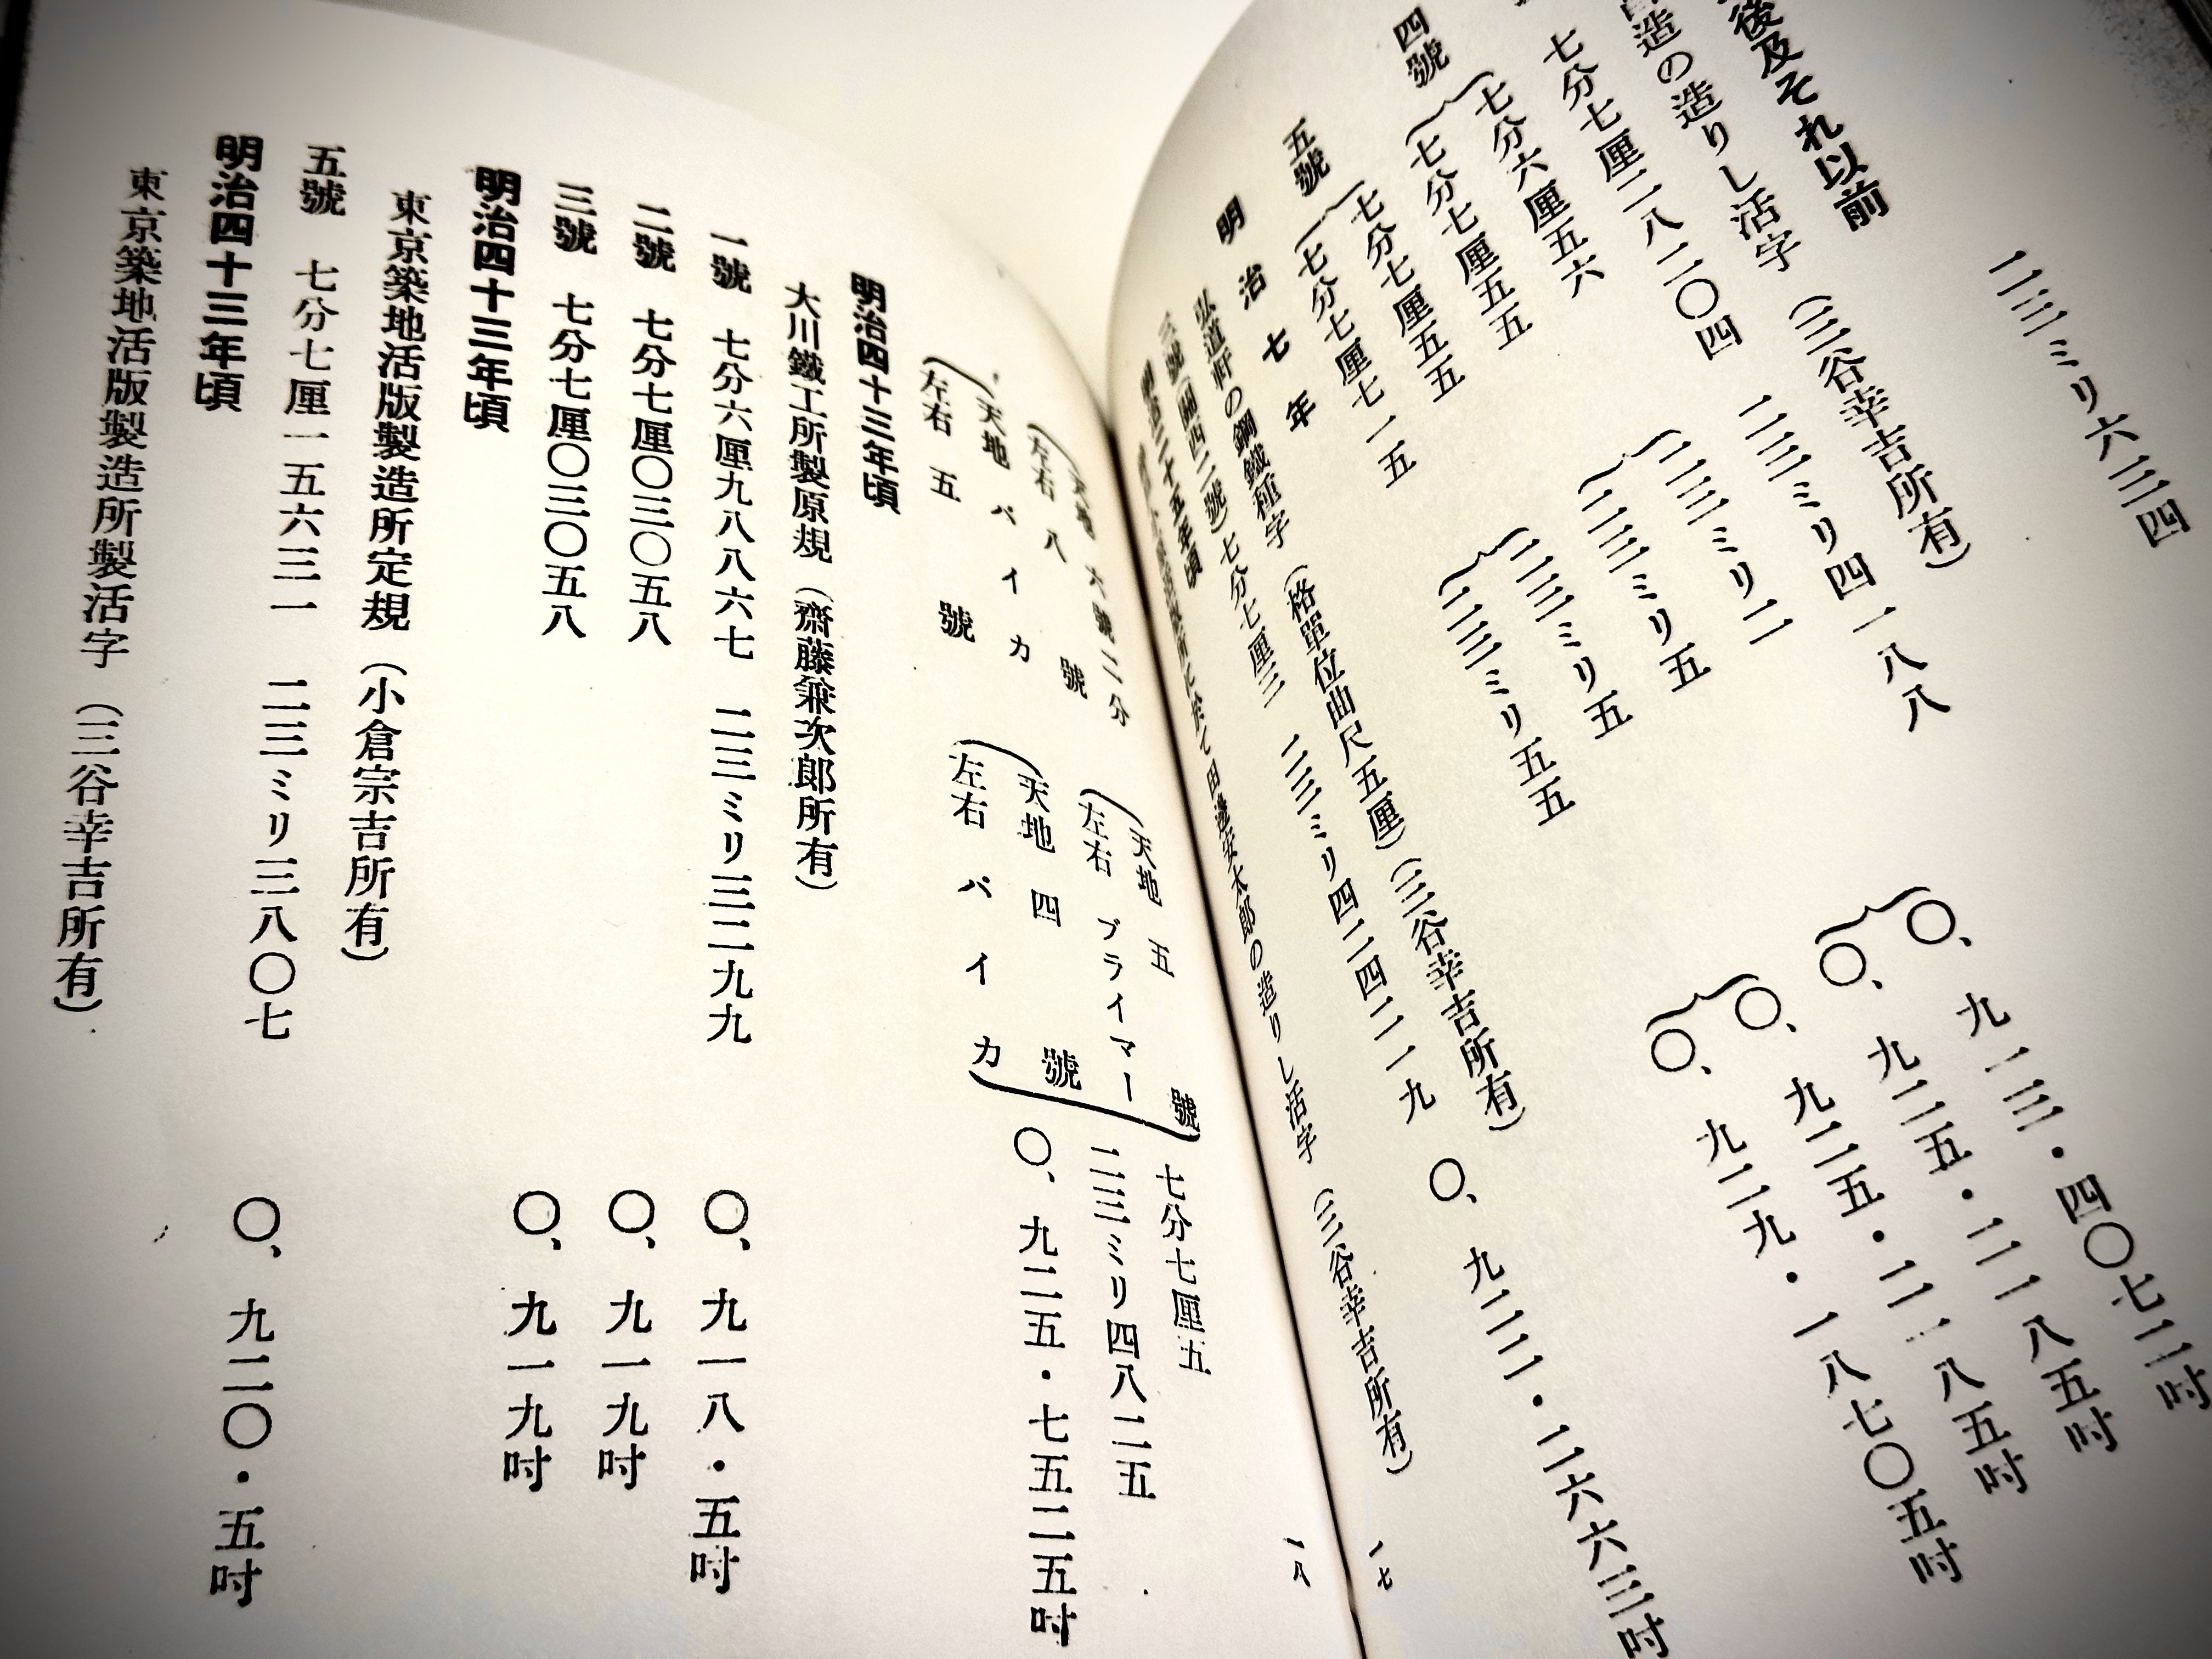 二三ミリ六三四
後及それ以前
造の造りし活字（三谷幸吉所有）
七分七厘二八二〇四　二三ミリ四一八八
四號　七分六厘五六　二三ミリ二　〇、九一三・四〇七二吋
七分七厘五五　二三ミリ五　〇、九二五・二一八五吋
五號　七分七厘五五　二三ミリ五　〇、九二五・二一八五吋
七分七厘七一五　二三ミリ五五　〇、九二九・一八七〇五吋
明治七年
弘道軒の鋼鐵種字（格單位曲尺五厘）（三谷幸吉所有）
三號（關西二號）七分七厘三　二三ミリ四二四二一九　〇、九二二・二六六三吋
明治二十五年頃
田邊安太郎の造りし活字（三谷幸吉所有）
一七
天地　六號二分　天地　五號　七分七厘五
左右　八號　左右　プライマー　二三ミリ四八二五
天地　パイカ　天地　四號　〇、九二五・七五二五吋
左右　五號　左右　パイカ
明治四十三年頃
大川鐵工所製原規（齋藤兼次郎所有）
一號　七分六厘九八八六七　二三ミリ三二九九　〇、九一八・五吋
二號　七分七厘〇三〇五八　〇、九一九吋
三號　七分七厘〇三〇五八　〇、九一九吋
明治四十三年頃
東京築地活版製造所定規（小倉宗吉所有）
五號　七分七厘一五六三一　二三ミリ三八〇七　〇、九二〇・五吋
明治四十三年頃
東京築地活版製造所製活字（三谷幸吉所有）
一八